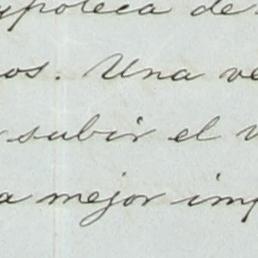 ypoteca de
os. Una ve
subir el v
a mejor imp